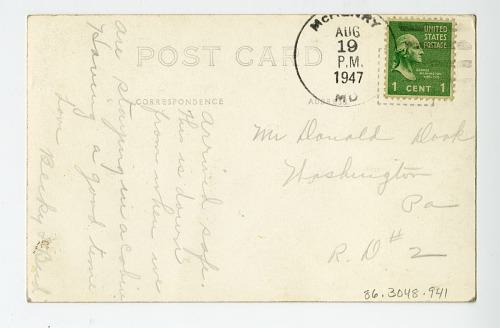 POST CARD
CORRESPONDENCE
McHENRY
AUG
19
P.M.
1947
MD
UNITED
STATES
POSTAGE
1 CENT 1
arrived safe.
This is down
from where we
are staying in a cabin.
Having a good time
Tom Becky & Bob
Mr Donald Dook
Washington
Pa
R. D # 2
86.3048.941